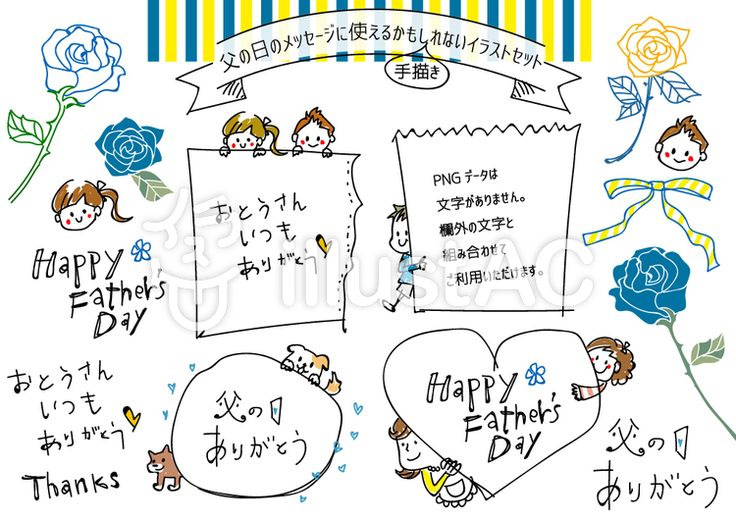 父の日のメッセージに使えるかもしれないイラストセット
手描き
おとうさん
いつも
ありがとう
PNGデータは
文字がありません。
欄外の文字と
組み合わせて
ご利用いただけます。
Happy
Father's
Day
おとうさん
いつも
ありがとう
Thanks
父の日
ありがとう
Happy
Father's
Day
父の日
ありがとう
illustAC